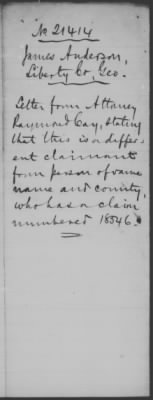 No 21414
James Anderson,
Liberty Co, Geo.
Letter from Attorney
Raymond Cay, stating
that this is a differ-
ent claimant
from person of same
name and county,
who has a claim
numbered 18546.